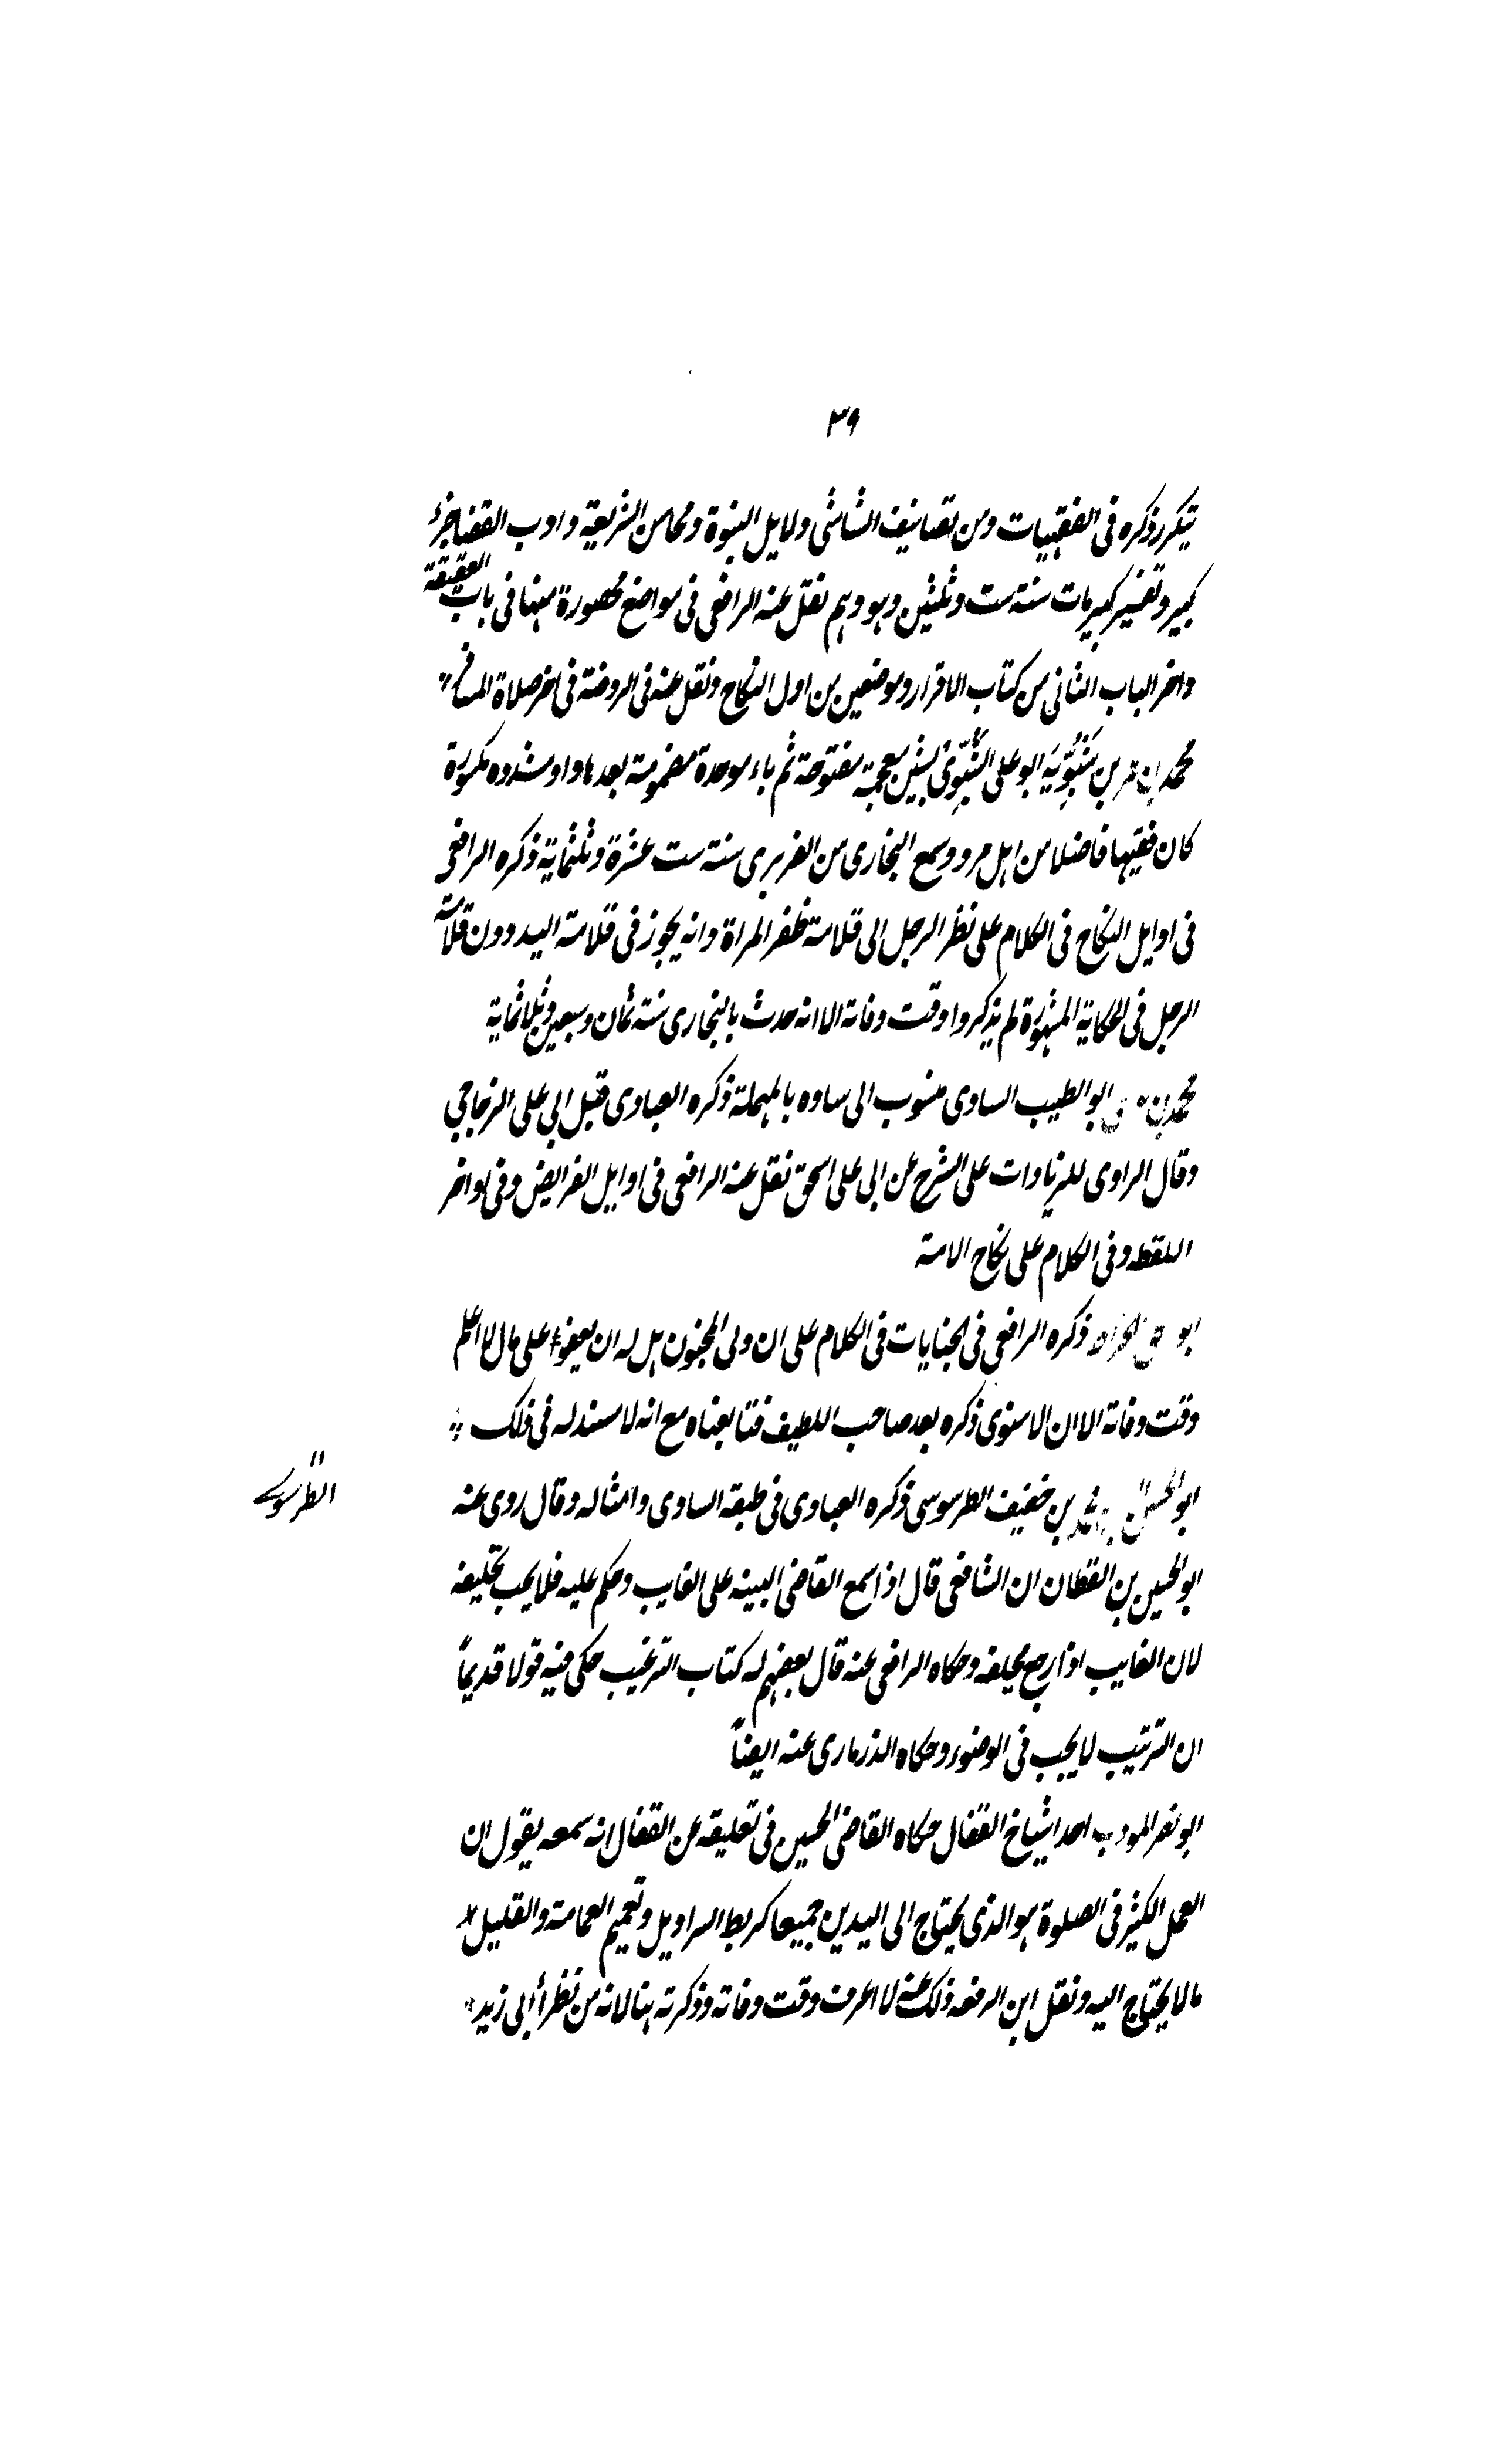 ٣٩
يتكرر ذكره فى الفقهيات ومن تصانيف الشاشى دلايل النبوة ومحاسن الشريعة وادب القضاجزء
كبير وتفسير كبير مات سنة ست وثلثين وهو وهم نقل عنه الرافعى فى مواضع محصورة منها فى باب العقيقة
واخر الباب الثانى من كتاب الاقرار وموضعين من اول النكاح ونقل عنه فى الروضة فى اخر صلاة المسافر
محمد بن عمر بن شَبُّوْيَه ابو على الشَّبُّوِّىْ بشين معجمة مفتوحة ثم باء موحدة مضمومة بعدها واو مشدده مكسورة
كان فقيها فاضلا من اهل مرو وسمع البخارى من الفربرى سنة ست عشرة وثلثماية ذكره الرافعى
فى اوايل النكاح فى الكلام على نظر الرجل الى قلامة ظفر المراة وانه يجوز فى قلامة اليد دون قلامة
الرجل فى الحكاية المشهورة لم يذكروا وقت وفاته الا انه حدث بالبخارى سنة ثمان وسبعين وثلاثماية
محمد بن ابو الطيب الساوى منسوب الى ساوه بالمهملة ذكره العبادى قبل ابى على الزجاجى
وقال الراوى للزيادات على الشرح عن ابى على اسحق نقل عنه الرافعى فى اوايل الفرايض وفى اواخر
اللقطه وفى الكلام على نكاح الامة
ابو ذكره الرافعى فى الجنايات فى الكلام على ان ولى المجنون هل له ان يعفو على مال لا اعلم
وقت وفاته الا ان الاسنوى ذكره بعد صاحب اللطيف فتابعناه مع انه لا مستند له فى ذلك
ابو الحسن بن محمد بن خفيف الطرسوسى ذكره العبادى فى طبقة الساوى وامثاله وقال روى عنه
الطرسوسى
ابو الحسين بن القطان ان الشافعى قال اذا سمع القاضى البينه على الغايب وحكم عليه فلا يجب تحليفه
لان الغايب اذا رجع يحلفه وحكاه الرافعى عنه قال بعضهم له كتاب الترغيب حكى فيه قولا قديماً
ان الترتيب لا يجب فى الوضوء وحكاه الذرمارى عنه ايضاً
ابو نصر المودب احد اشياخ القفال حكاه القاضى الحسين فى تعليقه عن القفال انه سمعه يقول ان
العمل الكثير فى الصلوة هو الذى يحتاج الى اليدين جميعا كربط السراويل وتعميم العمامة والقليل
مالا يحتاج اليه ونقل ابن الرفعه ذلك عنه لا اعرف وقت وفاته وذكرته هنا لانه من نظراء ابى زيد